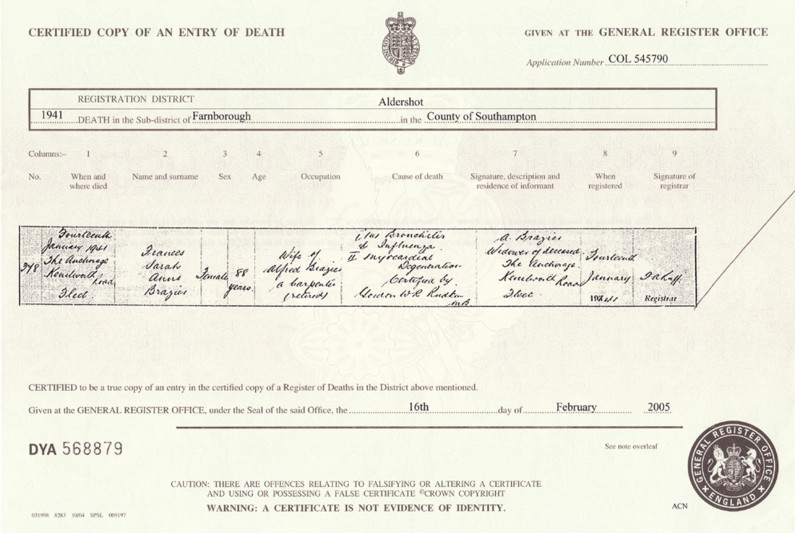 CERTIFIED COPY OF AN ENTRY OF DEATH
GIVEN AT THE GENERAL REGISTER OFFICE
Application Number COL 545790
REGISTRATION DISTRICT Aldershot
1941 DEATH in the Sub-district of Farnborough in the County of Southampton
Columns:– 1 2 3 4 5 6 7 8 9
No. When and where died Name and surname Sex Age Occupation Cause of death Signature, description and residence of informant When registered Signature of registrar
378
Fourteenth
January 1941
The Anchorage
Kenilworth
Road
Fleet
Frances
Sarah
Anns
Brazier
Female
88
years
Wife of
Alfred Brazier
a carpenter
(retired)
Bronchitis
& Influenza
II Myocardial
Degeneration
Certified by
Gordon W.R.
MB
A. Brazier
Widower of deceased
The Anchorage
Kenilworth Road
Fleet
Fourteenth
January
1941
Registrar
CERTIFIED to be a true copy of an entry in the certified copy of a Register of Deaths in the District above mentioned.
Given at the GENERAL REGISTER OFFICE, under the Seal of the said Office, the 16th day of February 2005
DYA 568879
See note overleaf
GENERAL REGISTER OFFICE
ENGLAND
CAUTION: THERE ARE OFFENCES RELATING TO FALSIFYING OR ALTERING A CERTIFICATE
AND USING OR POSSESSING A FALSE CERTIFICATE ©CROWN COPYRIGHT
WARNING: A CERTIFICATE IS NOT EVIDENCE OF IDENTITY.
ACN